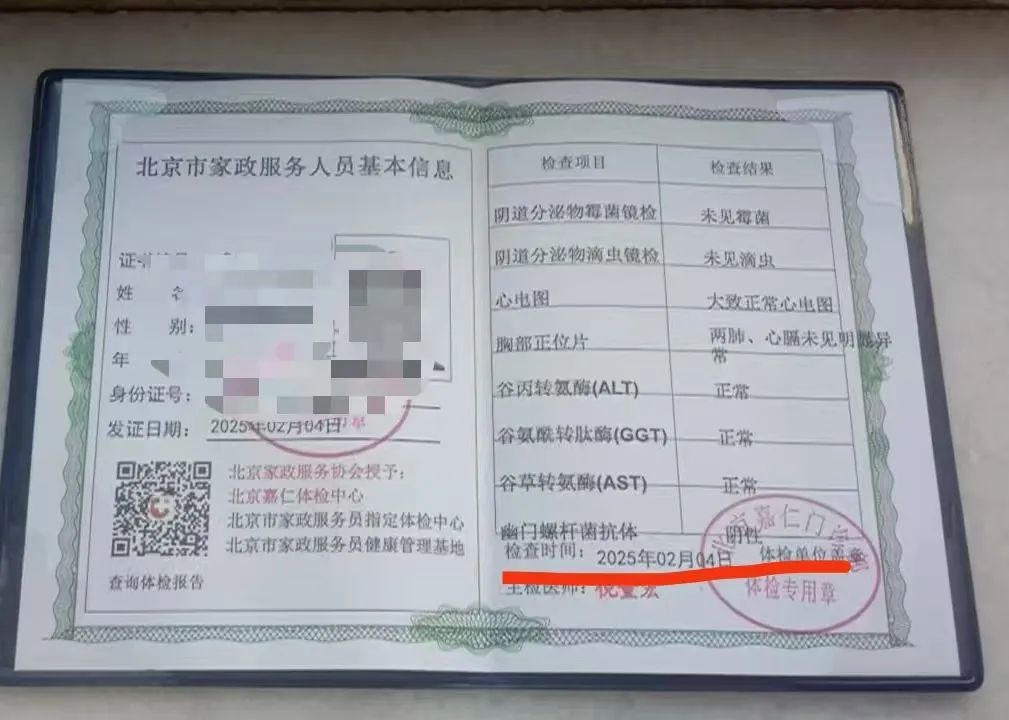 北京市家政服务人员基本信息
姓
性 别：
年
身份证号：
发证日期： 2025年02月04日
北京家政服务协会授予：
北京嘉仁体检中心
北京市家政服务员指定体检中心
北京市家政服务员健康管理基地
查询体检报告
检查项目 检查结果
阴道分泌物霉菌镜检 未见霉菌
阴道分泌物滴虫镜检 未见滴虫
心电图 大致正常心电图
胸部正位片 两肺、心膈未见明显异
常
谷丙转氨酶(ALT) 正常
谷氨酰转肽酶(GGT) 正常
谷草转氨酶(AST) 正常
幽门螺杆菌抗体 阴性
检查时间： 2025年02月04日 体检单位盖章
主检医师：
北京嘉仁门诊部
体检专用章